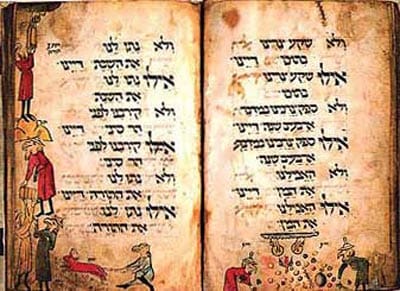 ולא שקע צרינו
בתוכו
אלו שקע צרינו
בתוכו דיינו
ולא ספק צרכינו במדבר
ארבעים שנה
אלו ספק צרכינו במדבר
ארבעים שנה דיינו
ולא האכילנו
את המן
אלו האכילנו
את המן דיינו
ולא נתן לנו
את השבת
אלו נתן לנו
את השבת דיינו
ולא קרבנו לפני
הר סיני
אלו קרבנו לפני
הר סיני דיינו
ולא נתן לנו
את התורה
אלו נתן לנו
את התורה דיינו